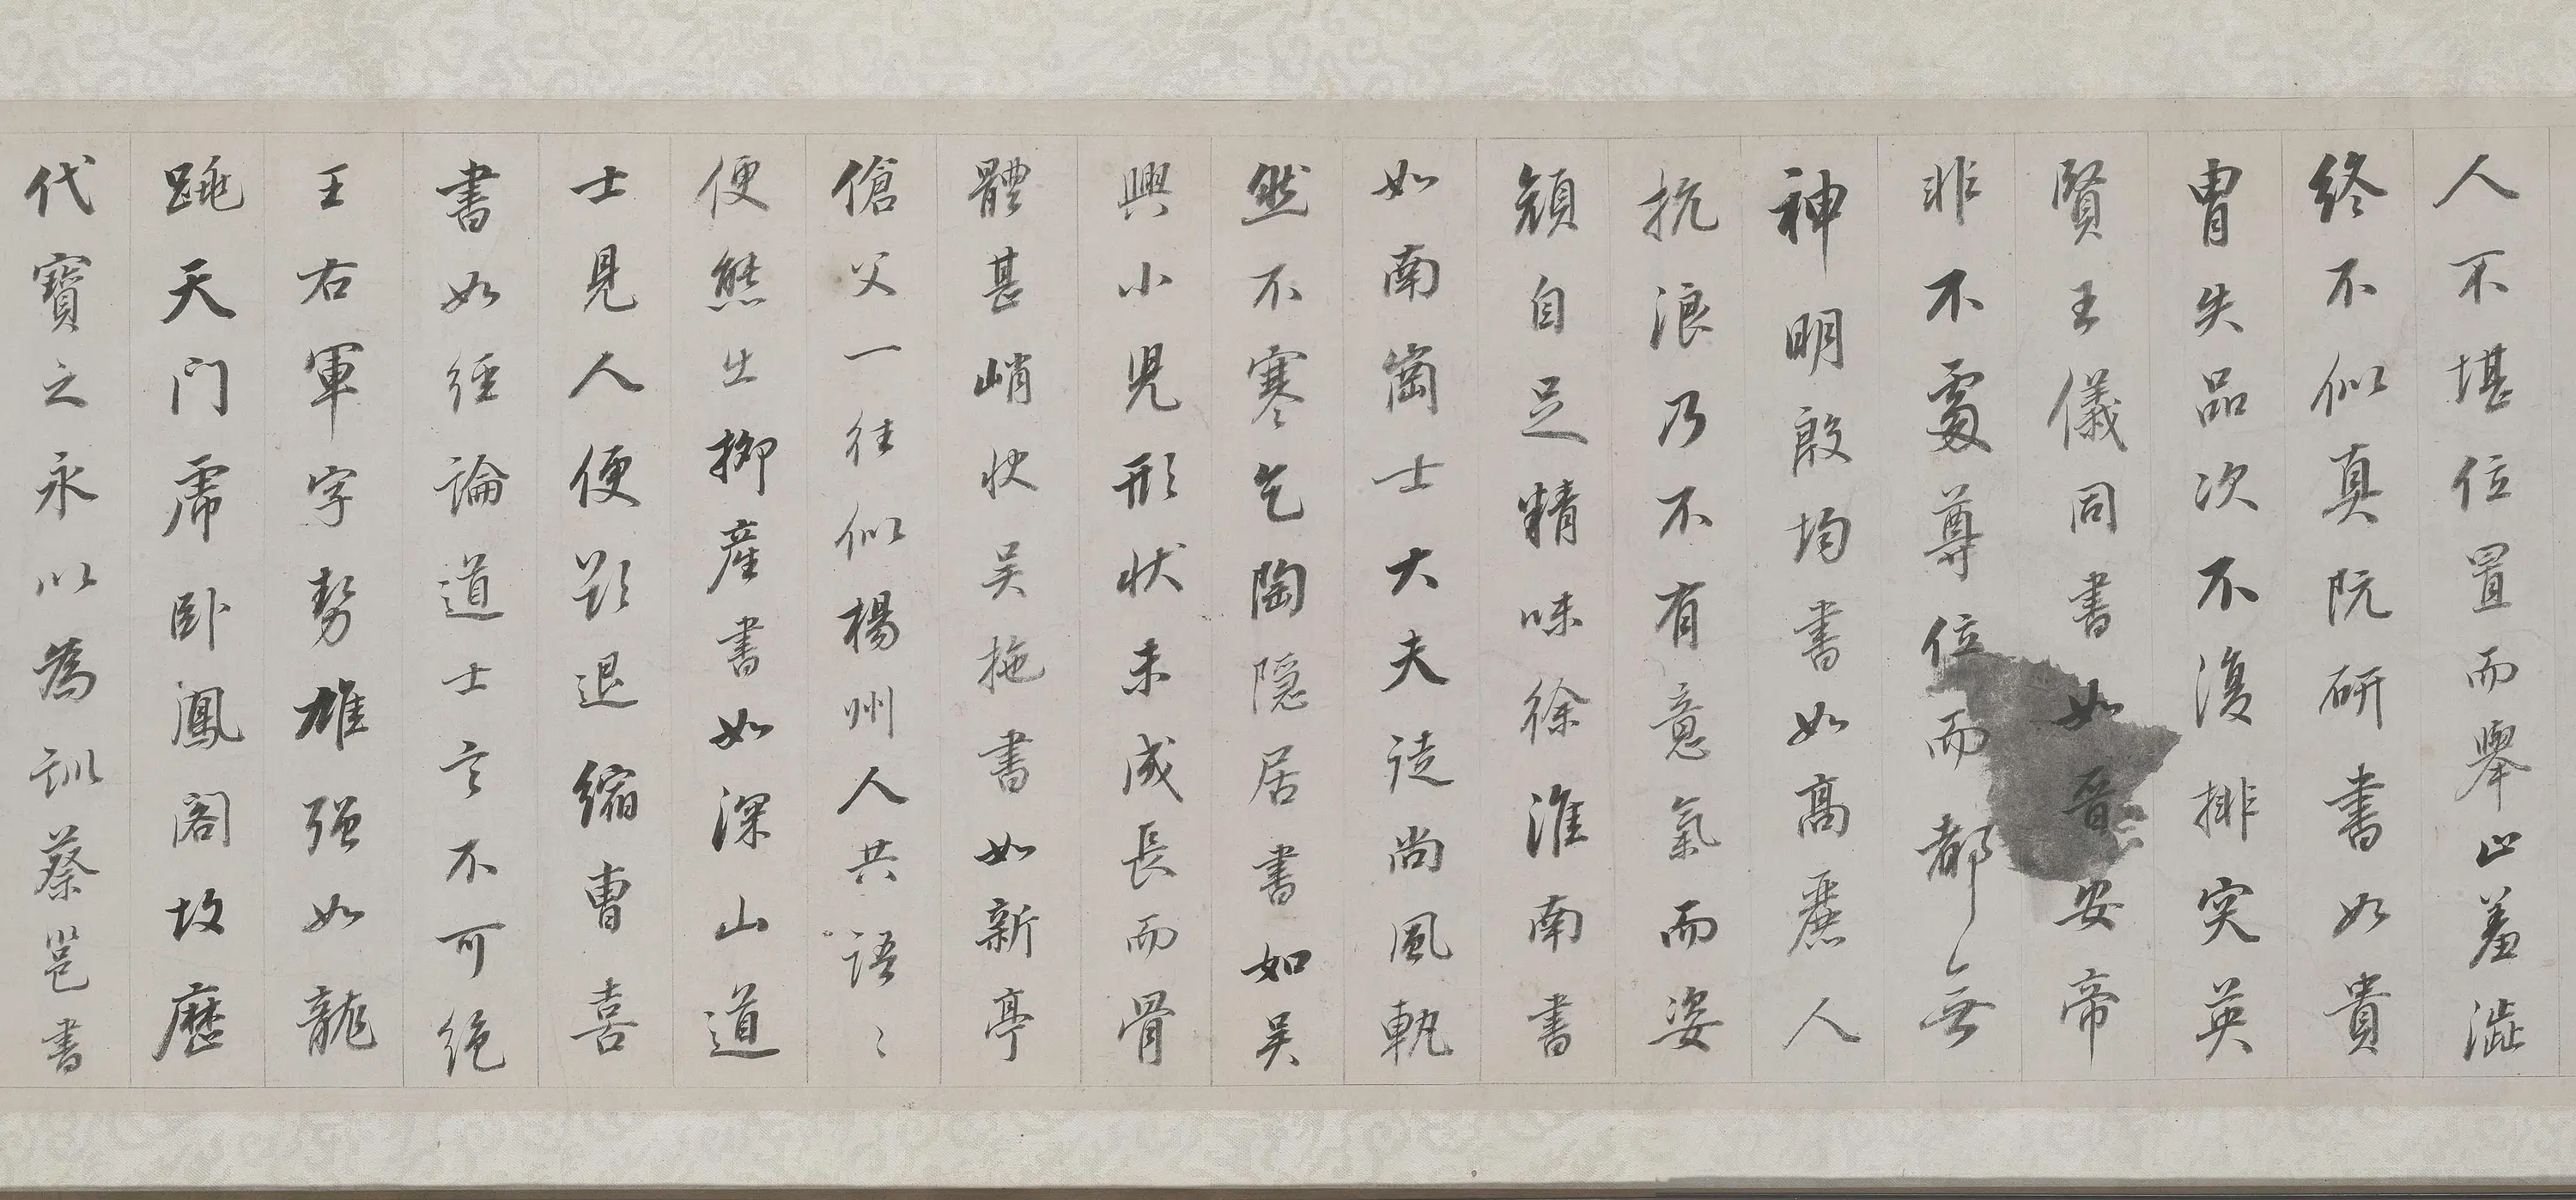 人不堪位置而舉止羞澁
終不似真阮研書如貴
胄失品次不復排突英
賢王儀同書如晉安帝
非不處尊位而都無
神明殷均書如高麗人
抗浪乃不有意氣而姿
顏自足精味徐淮南書
如南崗士大夫徒尚風軌
然不寒乞陶隱居書如吴
興小児形状未成長而骨
體甚峭快吴拖書如新亭
傖父一往似楊州人共語〻
便態出柳產書如深山道
士見人便欲退縮曹喜
書如經論道士言不可絕
王右軍字勢雄强如龍
跳天門虎卧鳳閣故歷
代寶之永以為訓蔡邕書